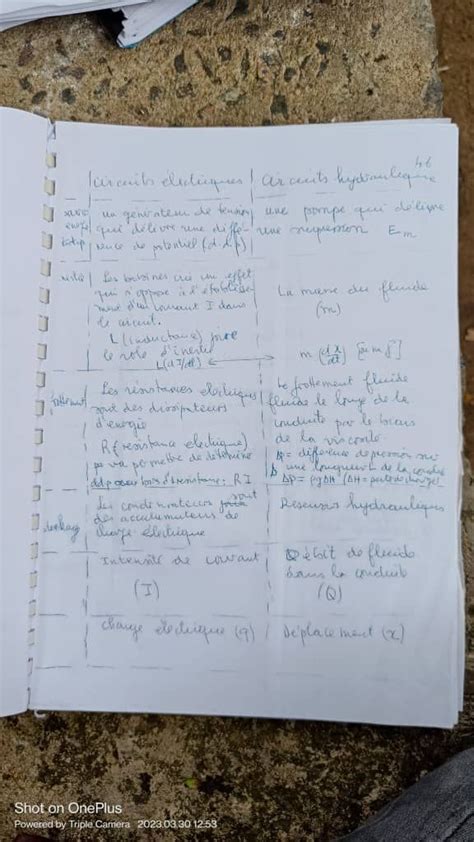 46
Circuits électriques
Circuits hydraulique
un générateur de tension
qui délivre une diffé-
rence de potentiel (ddp)
une pompe qui délivre
une Em
Les bobines un effet
qui s'oppose à l'
d'un courant I dans
le circuit.
L (inductance) joue
le role d'inertie
L(dI/dt)
La masse du fluide
(m)
m (dx/dt)
Les résistances électriques
sont des dissipateurs
d'énergie
R (resistance electrique)
va permettre de
resistance: RI
Le frottement fluide
fluide le longe de la
conduite par le biais
de la viscosité
différence de pression
une longueur de la
ΔP = ρgΔH (ΔH =
Les condensateurs sont
des accumulateurs de
charge électrique
Reservoirs hydrauliques
Intensité de courant
(I)
débit de fluide
dans la conduite
(Q)
charge électrique (q)
Déplacement (x)
Shot on OnePlus
Powered by Triple Camera 2023.03.30 12:53